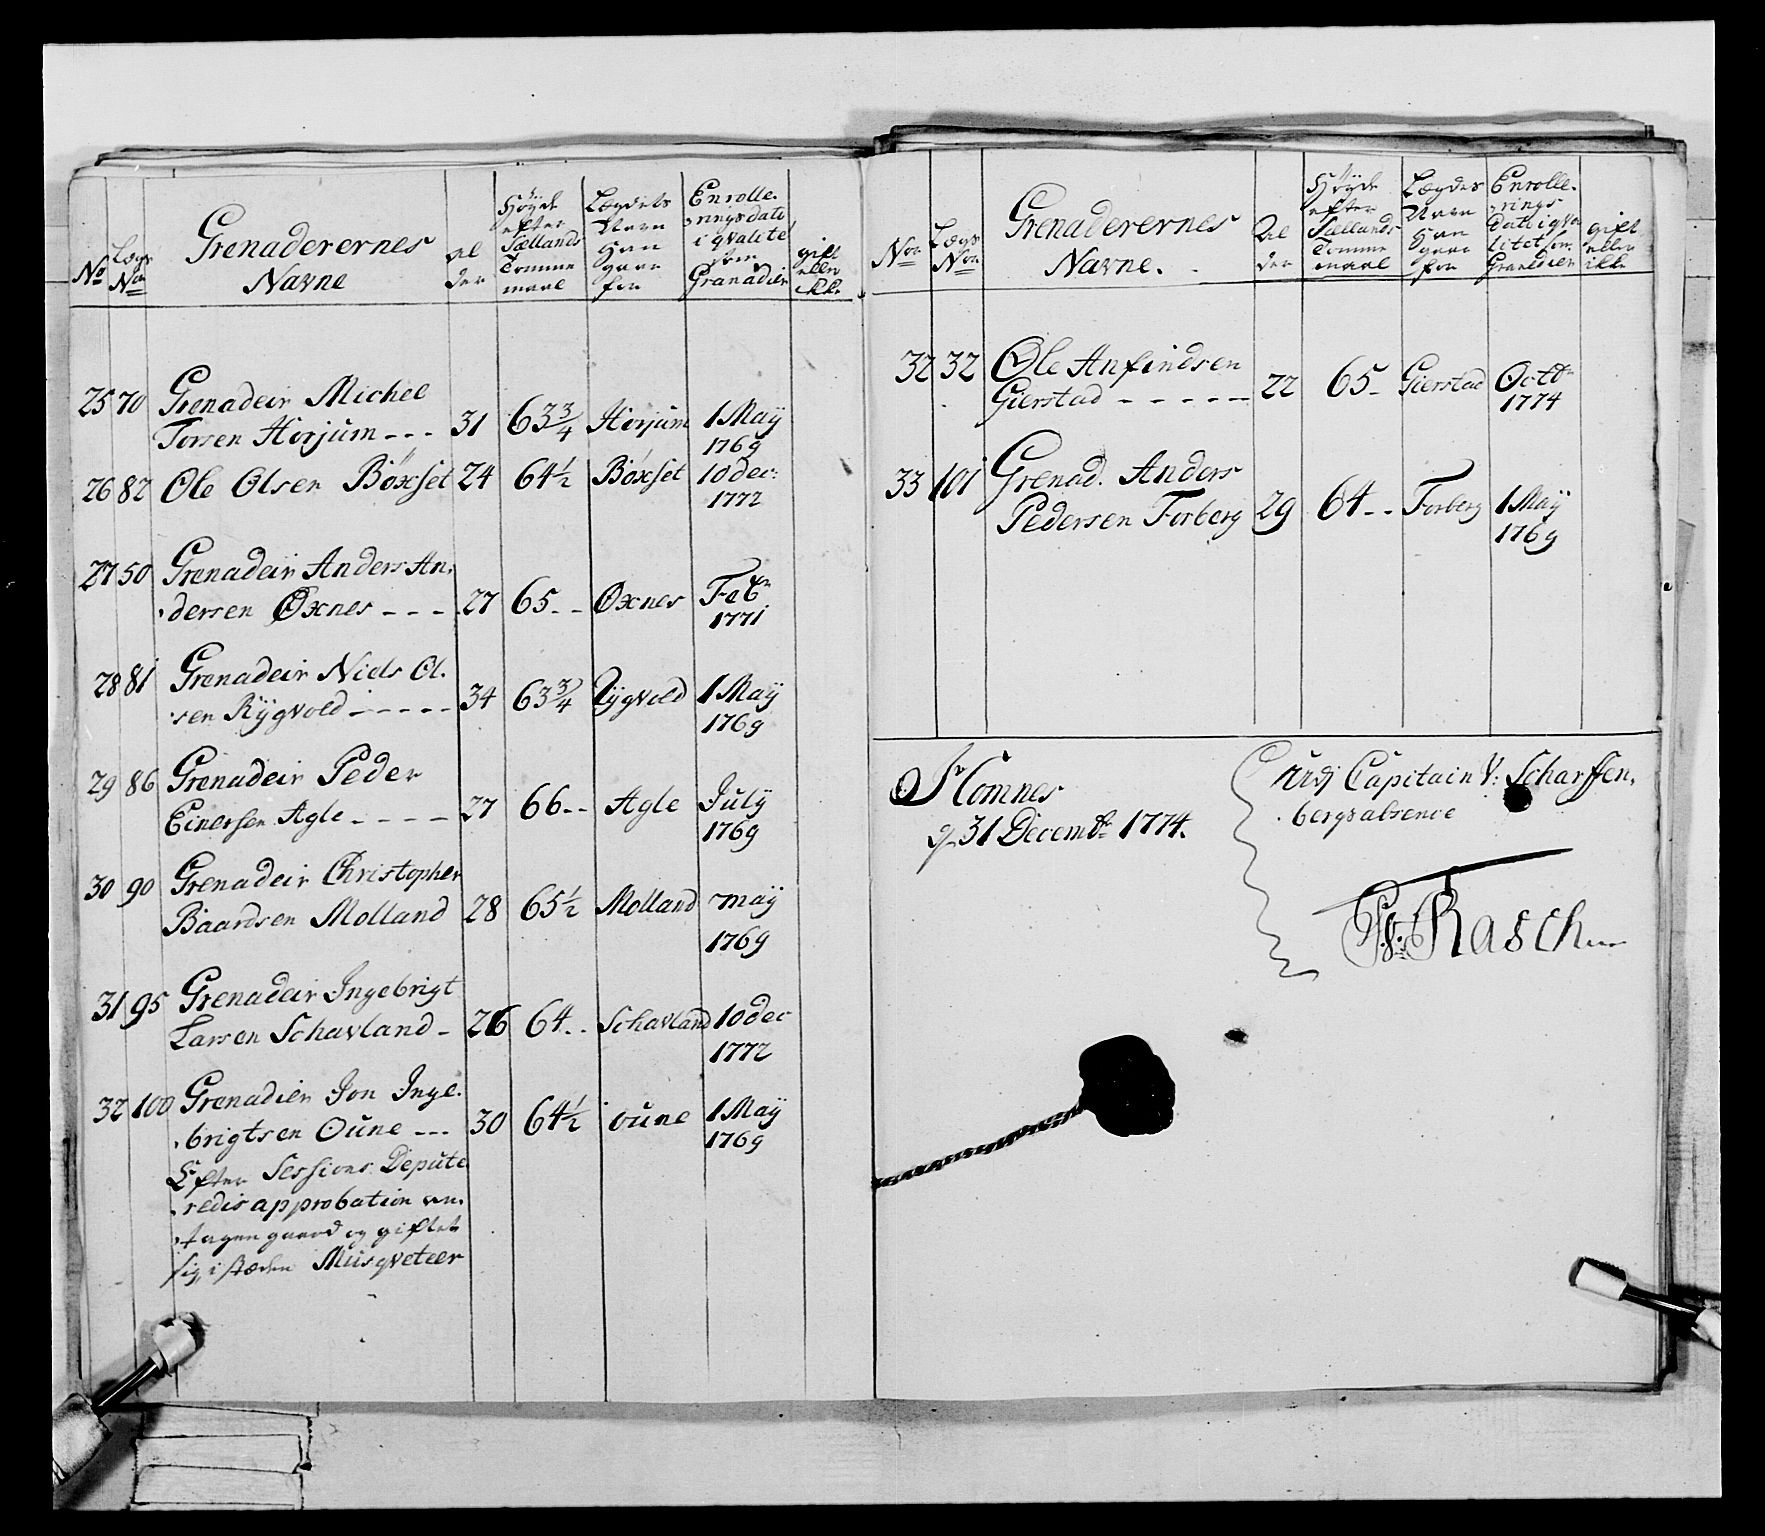 No | Lægs No | Grenaderernes Navne | Alder | Høyde efter Siællands Tomme maal | Lægdets Navn han gaar for | Enrolleringsdato i qvalitet som Granadier | gift eller ikke
25 | 70 | Grenadeir Michel
Torsen Horjum - - - | 31 | 63 3/4 | Horjum | 1 Maÿ 1769
26 | 82 | Ole Olsen Böxset | 24 | 64 1/2 | Böxset | 10 dec: 1772
27 | 50 | Grenadeir Anders An-
dersen Oxnes - - - - | 27 | 65 - - | Oxnes | Febr 1771
28 | 81 | Grenadeir Niels Ol-
sen Rÿgvold - - - - - | 34 | 63 3/4 | Rÿgvold | 1 Maÿ 1769
29 | 86 | Grenadeir Peder
Einersen Agle - - - - | 27 | 66 - - | Agle | Julÿ 1769
30 | 90 | Grenadeir Christopher
Baardsen Molland | 28 | 65 1/2 | Molland | maÿ 1769
31 | 95 | Grenadeir Ingebrigt
Larsen Schavland - | 26 | 64 - - | Schavland | 10 dec 1772
32 | 100 | Grenadier Jon Inge-
brigtsen Oune - - - | 30 | 64 1/2 | oune | 1 Maÿ 1769
Efter Sessions Depute
redis approbation an-
tagen gaard og giftet
sig, i stæden Musqveteer
Nor | Lægs Nor | Grenaderernes Navne. | Alder | Høyde efter Siællands Tomme maal | Lægdes Navn han gaar for | Enrollerings Dato i qvalitet som Granadier | gift eller ikke
32 | 32 | Ole Anfindsen
Gierstad - - - - - | 22 | 65 - | Gierstad | Octbr 1774
33 | 101 | Grenad. Anders
Pedersen Forberg | 29 | 64 - - | Forberg | 1 Maÿ 1769
Homnes
31 Decembr 1774.
Udj Capitain V: Scharffen-
bergs absence
Rasch